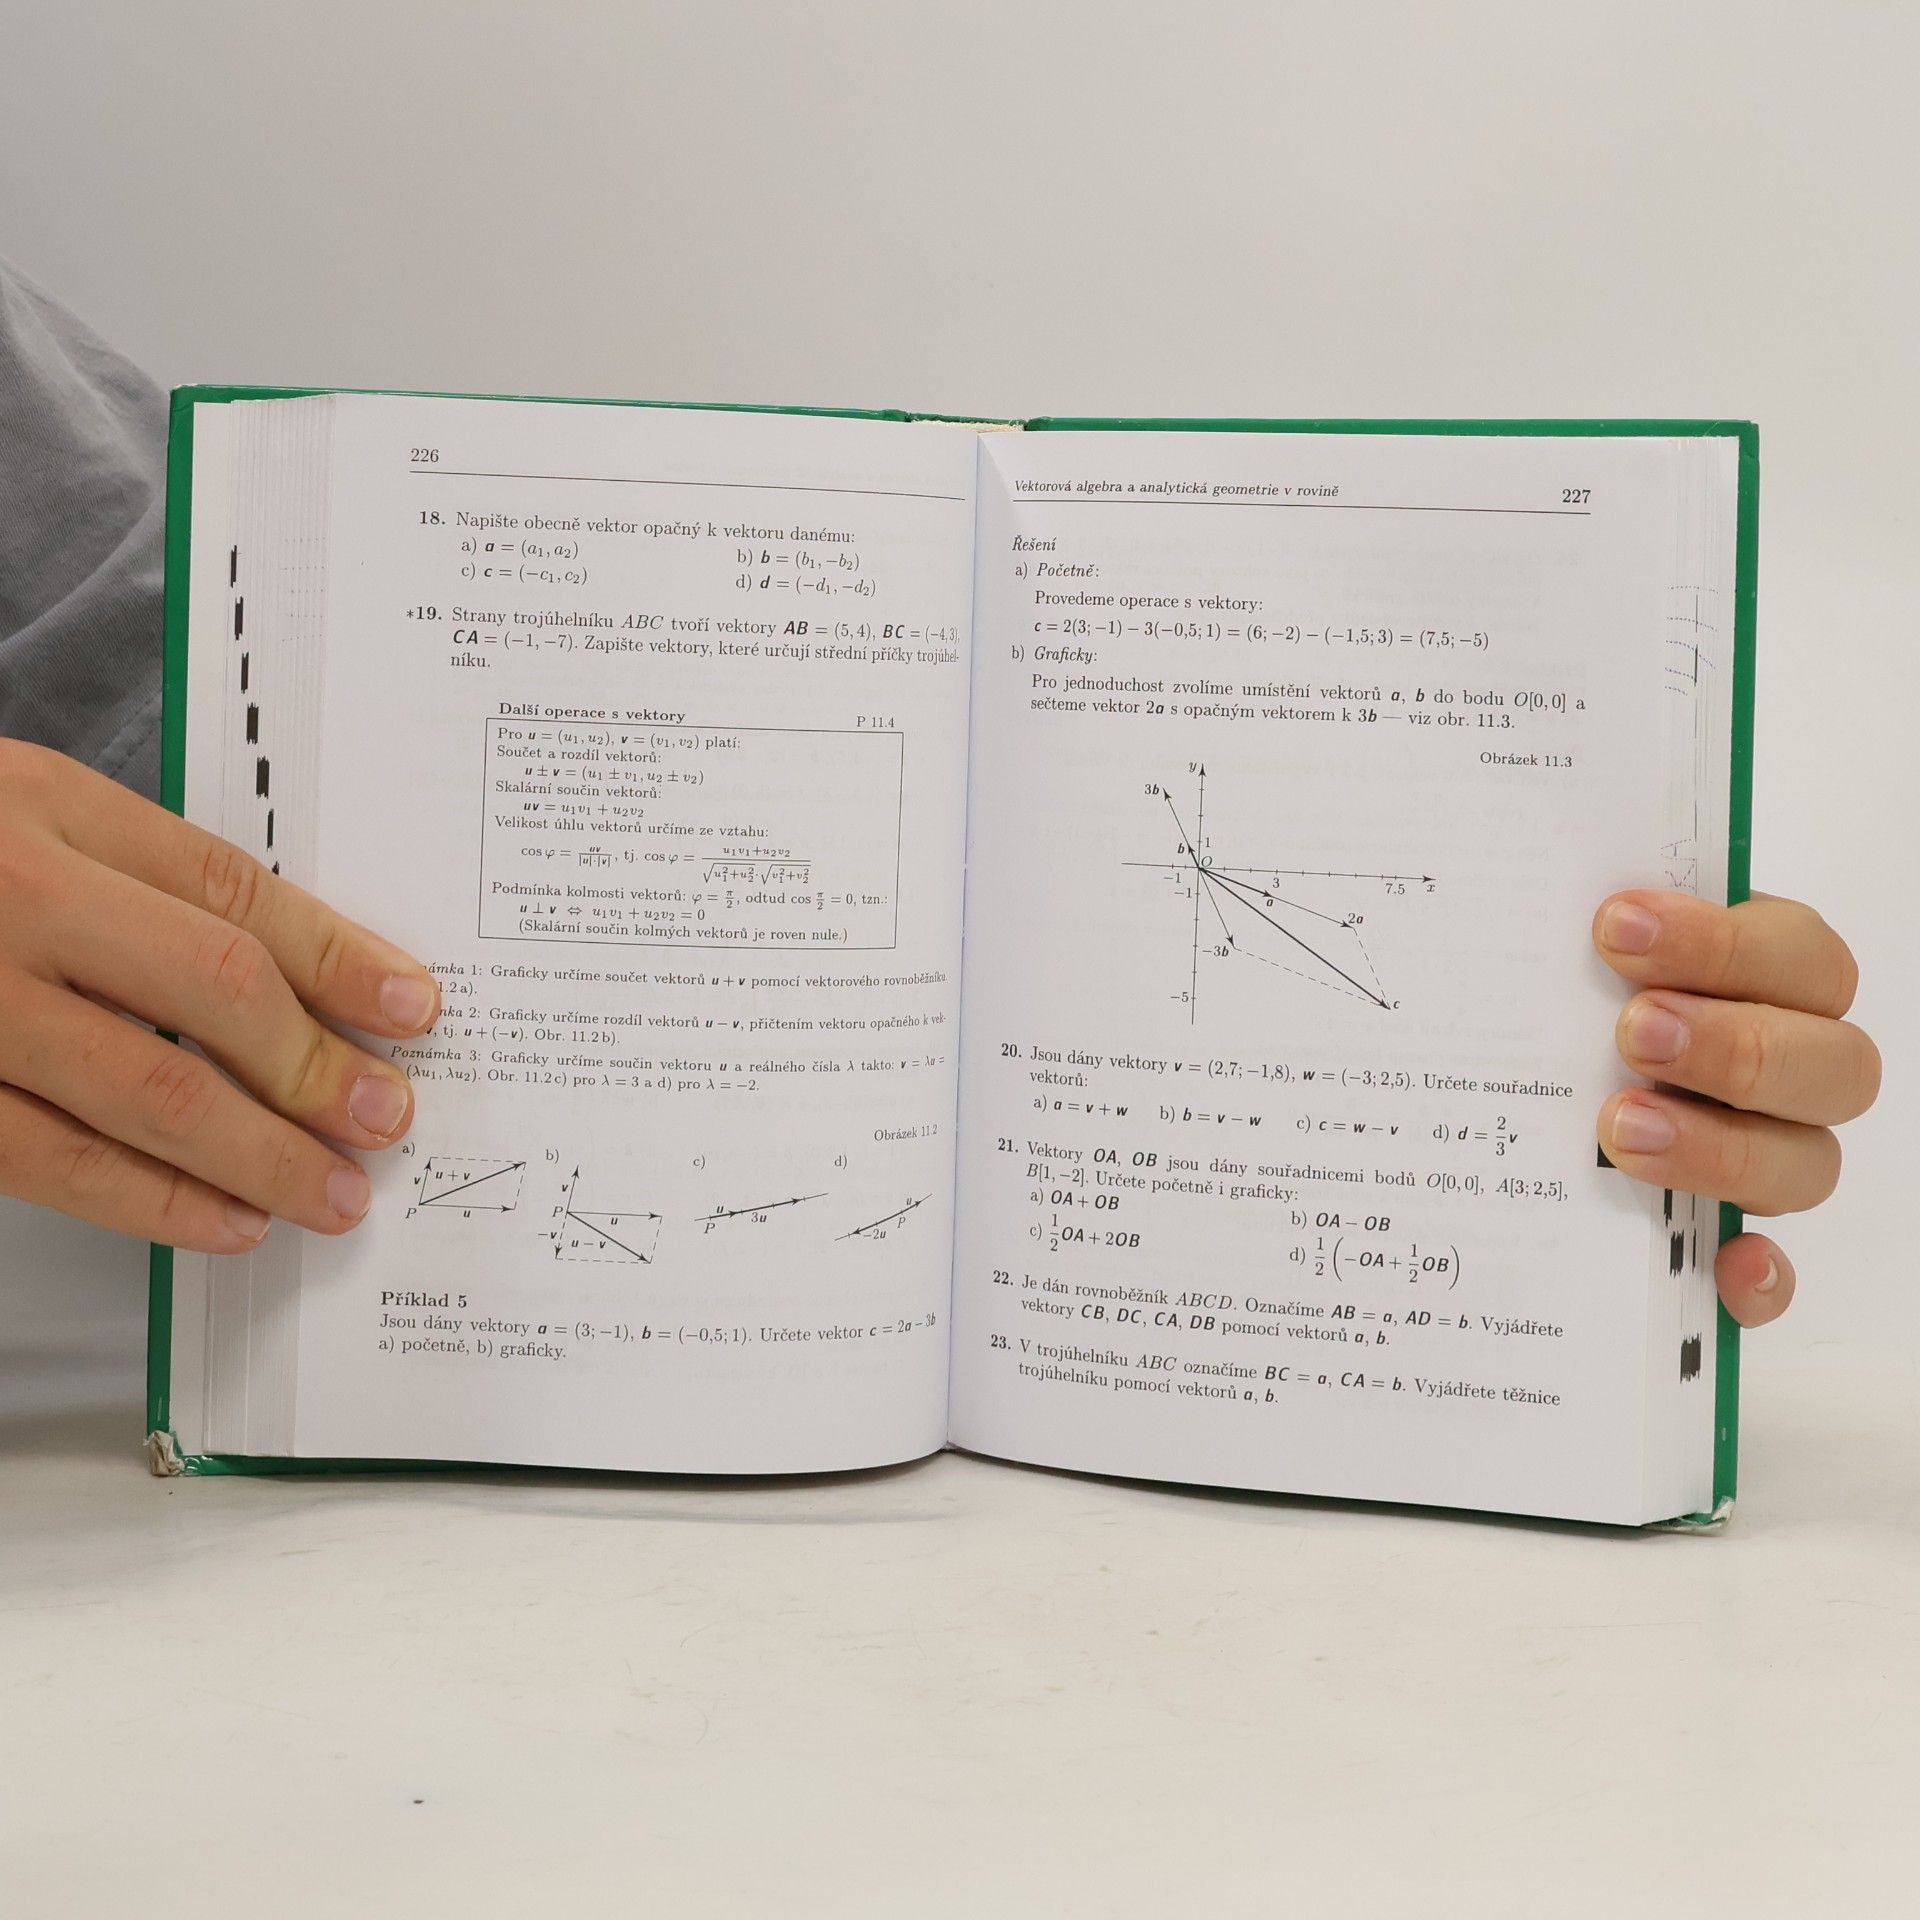 226
18. Napište obecně vektor opačný k vektoru danému:
a) a = (a₁, a₂)
b) b = (b₁, −b₂)
c) c = (−c₁, c₂)
d) d = (−d₁, −d₂)
*19. Strany trojúhelníku ABC tvoří vektory AB = (5, 4), BC = (−4, 3),
CA = (−1, −7). Zapište vektory, které určují střední příčky trojúhel-
níku.
Další operace s vektory P 11.4
Pro u = (u₁, u₂), v = (v₁, v₂) platí:
Součet a rozdíl vektorů:
u ± v = (u₁ ± v₁, u₂ ± v₂)
Skalární součin vektorů:
uv = u₁v₁ + u₂v₂
Velikost úhlu vektorů určíme ze vztahu:
cos φ = uv/(|u|·|v|), tj. cos φ = (u₁v₁+u₂v₂)/(√(u₁²+u₂²)·√(v₁²+v₂²))
Podmínka kolmosti vektorů: φ = π/2, odtud cos π/2 = 0, tzn.:
u ⊥ v ⇔ u₁v₁ + u₂v₂ = 0
(Skalární součin kolmých vektorů je roven nule.)
1: Graficky určíme součet vektorů u + v pomocí vektorového rovnoběžníku.
1.2 a).
2: Graficky určíme rozdíl vektorů u − v, přičtením vektoru opačného k vek-
v, tj. u + (−v). Obr. 11.2 b).
Poznámka 3: Graficky určíme součin vektoru u a reálného čísla λ takto: v = λu =
(λu₁, λu₂). Obr. 11.2 c) pro λ = 3 a d) pro λ = −2.
Obrázek 11.2
a)
v
u + v
P
u
b)
v
P
u
−v
u − v
c)
u
P
3u
d)
u
P
−2u
Příklad 5
Jsou dány vektory a = (3; −1), b = (−0,5; 1). Určete vektor c = 2a − 3b
a) početně, b) graficky.
Vektorová algebra a analytická geometrie v rovině 227
Řešení
a) Početně:
Provedeme operace s vektory:
c = 2(3; −1) − 3(−0,5; 1) = (6; −2) − (−1,5; 3) = (7,5; −5)
b) Graficky:
Pro jednoduchost zvolíme umístění vektorů a, b do bodu O[0, 0] a
sečteme vektor 2a s opačným vektorem k 3b — viz obr. 11.3.
Obrázek 11.3
y
3b
1
b
O
−1
3
7.5
x
−1
a
2a
−3b
−5
c
20. Jsou dány vektory v = (2,7; −1,8), w = (−3; 2,5). Určete souřadnice
vektorů:
a) a = v + w b) b = v − w c) c = w − v d) d = 2/3 v
21. Vektory OA, OB jsou dány souřadnicemi bodů O[0, 0], A[3; 2,5],
B[1, −2]. Určete početně i graficky:
a) OA + OB
b) OA − OB
c) 1/2 OA + 2OB
d) 1/2 (−OA + 1/2 OB)
22. Je dán rovnoběžník ABCD. Označíme AB = a, AD = b. Vyjádřete
vektory CB, DC, CA, DB pomocí vektorů a, b.
23. V trojúhelníku ABC označíme BC = a, CA = b. Vyjádřete těžnice
trojúhelníku pomocí vektorů a, b.